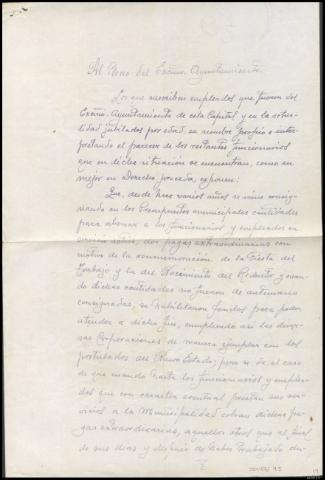 Al Pleno del Excmo. Ayuntamiento.
Los que suscriben empleados que fueron del
Excmo. Ayuntamiento de esta Capital y en la actua-
lidad jubilados por edad, en nombre propio e inter-
pretando el parecer de los restantes funcionarios
que en dicha situación se encuentran, como en
mejor en Derecho proceda, exponen:
Que, desde hace varios años se viene consig-
nando en los Presupuestos municipales cantidades
para abonar a los funcionarios y empleados en
servicio activo, dos pagas extraordinarias con
motivo de la conmemoración de la Fiesta del
Trabajo y la del Nacimiento del Redentor, y cuan-
do dichas cantidades no fueron de antemano
consignadas, se habilitaron fondos para poder
atender a dicho fin, cumpliendo así las diver-
sas Corporaciones de manera ejemplar con los
postulados del Nuevo Estado; pero se da el caso
de que cuando hasta los funcionarios y emplea-
dos que con caracter eventual prestan sus ser-
vicios a la Municipalidad cobran dichas pa-
gas extraordinarias, aquellos otros que al final
de sus dias y después de haber trabajado du-